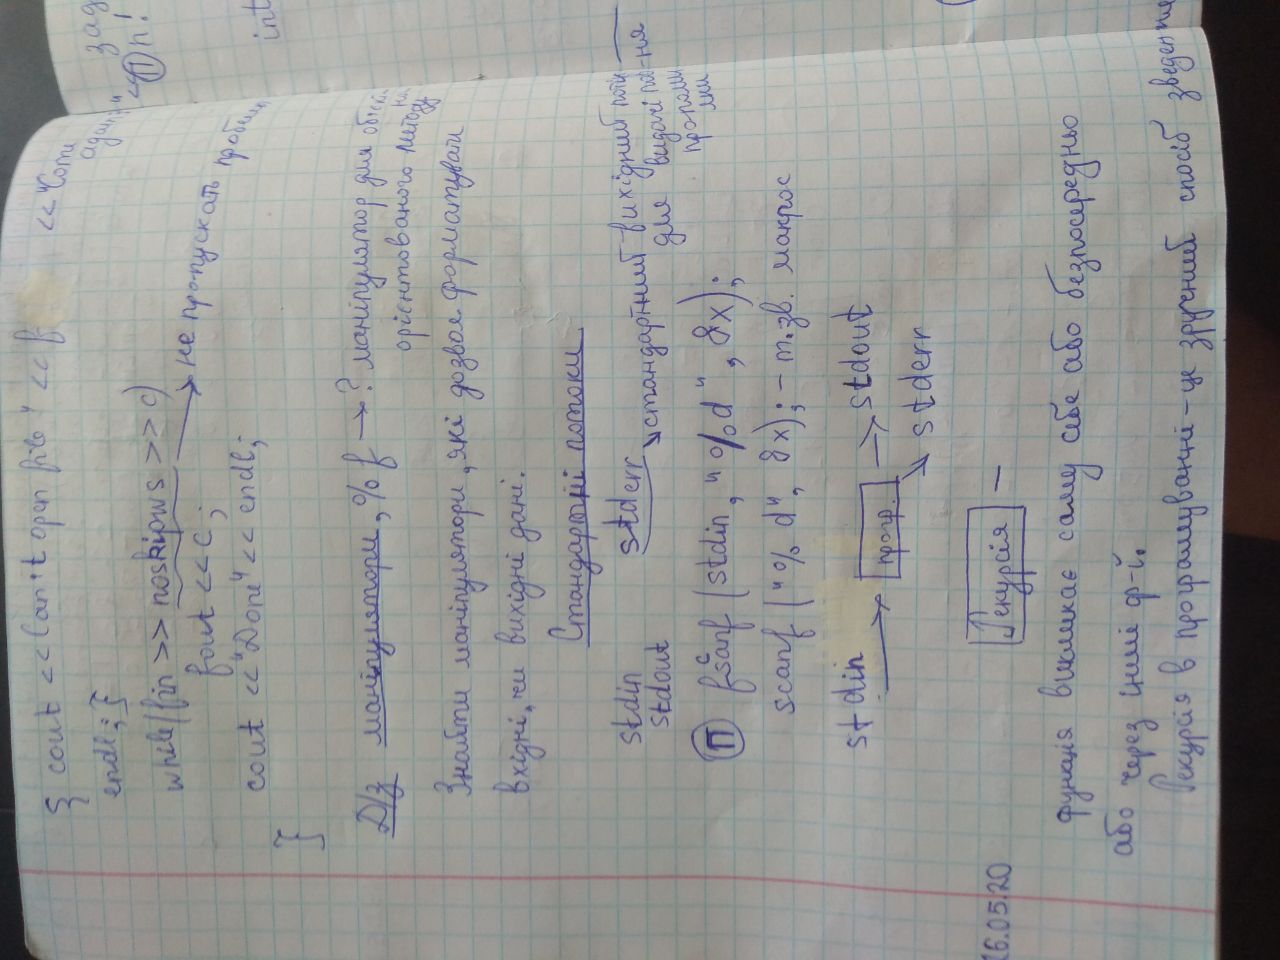 { cout << "Can't open file" << f << "Come again"
endl; }
while(fin >> noskipws >> c) → не пропускать пробелы
fout << c;
cout << "Done" << endl;
}
Д/з маніпулятори, % f → ? маніпулятор для
орієнтованого методу
Знайти маніпулятори, які дозвол. форматувати
вхідні, чи вихідні дані.
Стандартні потоки
stdin stderr → стандартний вихідний потік
stdout для видачі пов-ня
промилки
П fscanf (stdin, "%d", &x);
scanf ("% d", &x); - т.зв. макрос
stdin → прогр. → stdout
→ stderr
26.05.20 Рекурсія —
функція викликає саму себе або безпосередньо
або через інші ф-ї.
Рекурсія в програмуванні - це зручний спосіб зведення
зад
П n!
int